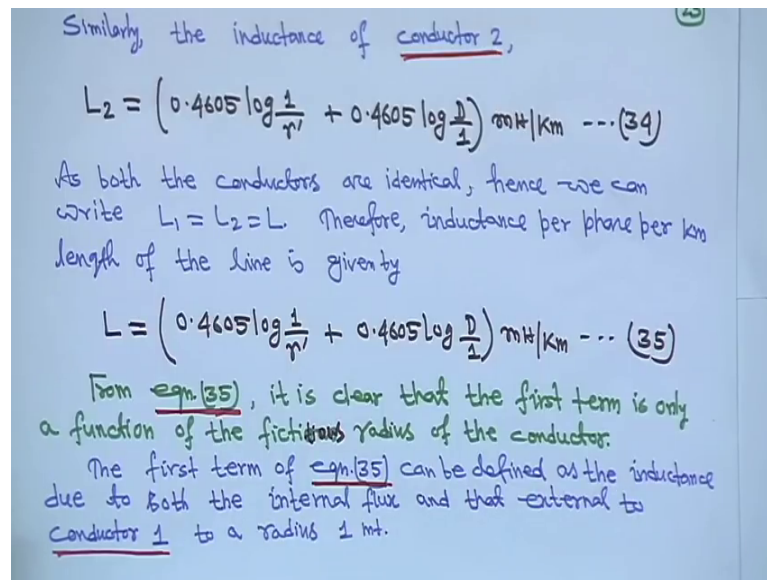 23
Similarly, the inductance of conductor 2,
L₂ = (0.4605 log 1/r' + 0.4605 log D/1) mH/km ---(34)
As both the conductors are identical, hence we can
write L₁ = L₂ = L. Therefore, inductance per phase per km
length of the line is given by
L = (0.4605 log 1/r' + 0.4605 log D/1) mH/km --- (35)
From eqn.(35), it is clear that the first term is only
a function of the fictitous radius of the conductor.
The first term of eqn.(35) can be defined as the inductance
due to both the internal flux and that external to
conductor 1 to a radius 1 mt.